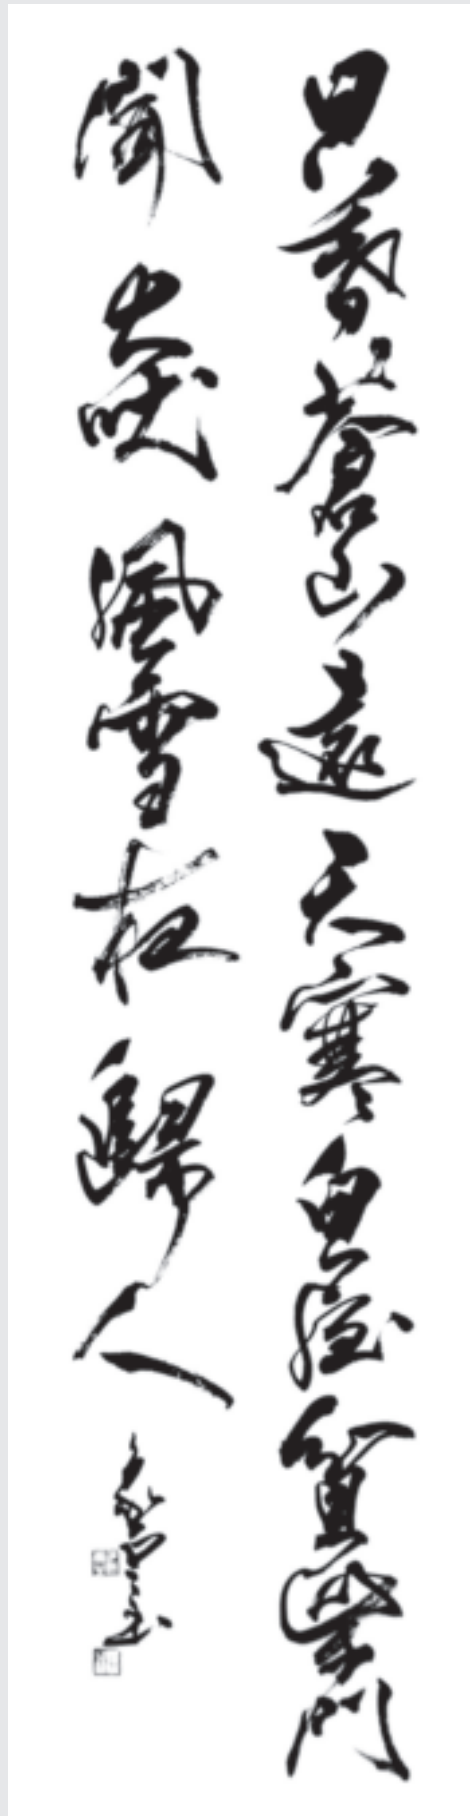 日暮蒼山遠天寒白屋貧柴門
聞犬吠風雪夜歸人